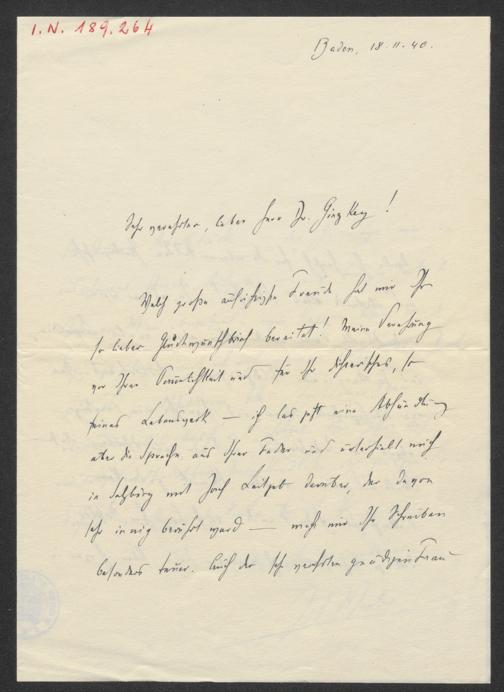 I. N. 189.264
Baden, 18.11.40.
Sehr verehrter, lieber Herr Dr. Ginzkey!
Welch große aufrichtige Freude hat mir Ihr
so lieber Glückwunschbrief bereitet! Meine Verehrung
vor Ihrer Persönlichkeit und für Ihr dichterisches, so
feines Lebenswerk — ich las jetzt eine Abhandlung
über die Sprache aus Ihrer Feder und unterhielt mich
in Salzburg mit Josef Leitgeb darüber, der davon
sehr innig berührt ward — macht mir Ihr Schreiben
besonders teuer. Auch der sehr verehrten gnädigen Frau